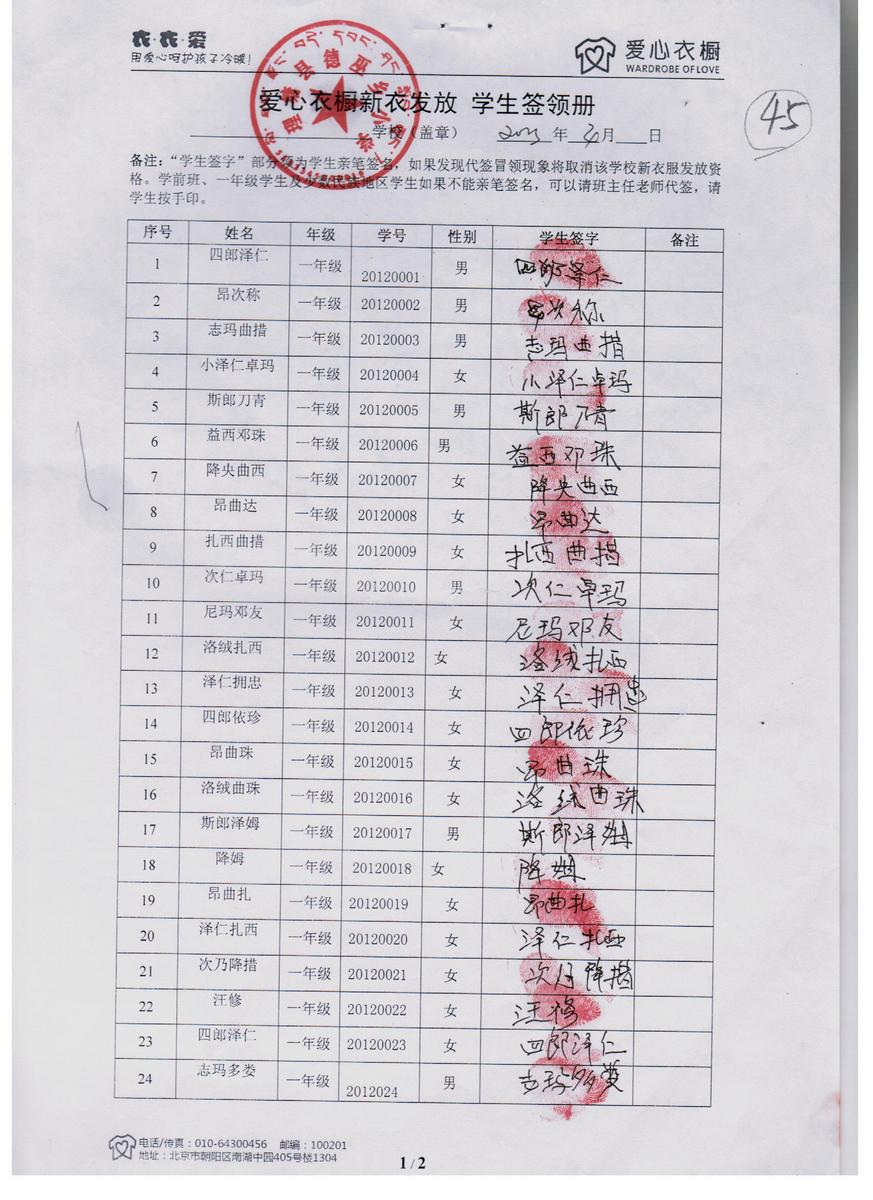 衣·衣·爱
用爱心呵护孩子冷暖!
爱心衣橱
WARDROBE OF LOVE
理塘县德巫乡小学
45
爱心衣橱新衣发放 学生签领册
学校（盖章） 年 月 日
备注：“学生签字”部分须为学生亲笔签名，如果发现代签冒领现象将取消该学校新衣服发放资
格。学前班、一年级学生及少数民族地区学生如果不能亲笔签名，可以请班主任老师代签，请
学生按手印。
序号 姓名 年级 学号 性别 学生签字 备注
1 四郎泽仁 一年级 20120001 男 四郎泽仁
2 昂次称 一年级 20120002 男 昂次称
3 志玛曲措 一年级 20120003 男 志玛曲措
4 小泽仁卓玛 一年级 20120004 女 小泽仁卓玛
5 斯郎刀青 一年级 20120005 男 斯郎刀青
6 益西邓珠 一年级 20120006 男 益西邓珠
7 降央曲西 一年级 20120007 女 降央曲西
8 昂曲达 一年级 20120008 女 昂曲达
9 扎西曲措 一年级 20120009 女 扎西曲措
10 次仁卓玛 一年级 20120010 男 次仁卓玛
11 尼玛邓友 一年级 20120011 女 尼玛邓友
12 洛绒扎西 一年级 20120012 女 洛绒扎西
13 泽仁拥忠 一年级 20120013 女 泽仁拥
14 四郎依珍 一年级 20120014 女 四郎依珍
15 昂曲珠 一年级 20120015 女 昂曲珠
16 洛绒曲珠 一年级 20120016 女 洛绒曲珠
17 斯郎泽姆 一年级 20120017 男 斯郎泽姆
18 降姆 一年级 20120018 女 降姆
19 昂曲扎 一年级 20120019 女 昂曲扎
20 泽仁扎西 一年级 20120020 女 泽仁扎西
21 次乃降措 一年级 20120021 女 次乃降措
22 汪修 一年级 20120022 女 汪修
23 四郎泽仁 一年级 20120023 女 四郎泽仁
24 志玛多娄 一年级 2012024 男 志玛多娄
电话/传真：010-64300456 邮编：100201
地址：北京市朝阳区南湖中园405号楼1304
1 / 2